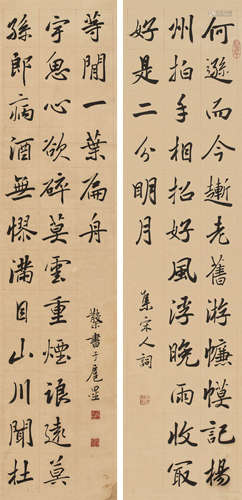 何遜而今漸老舊游幰幙記楊
州拍手相招好風浮晚雨收冣
好是二分明月
集宋人詞
孫郎病酒無憀滿目山川聞杜
宇愁心欲碎莫雲重煙浪遠莫
等閒一葉扁舟
書于扈